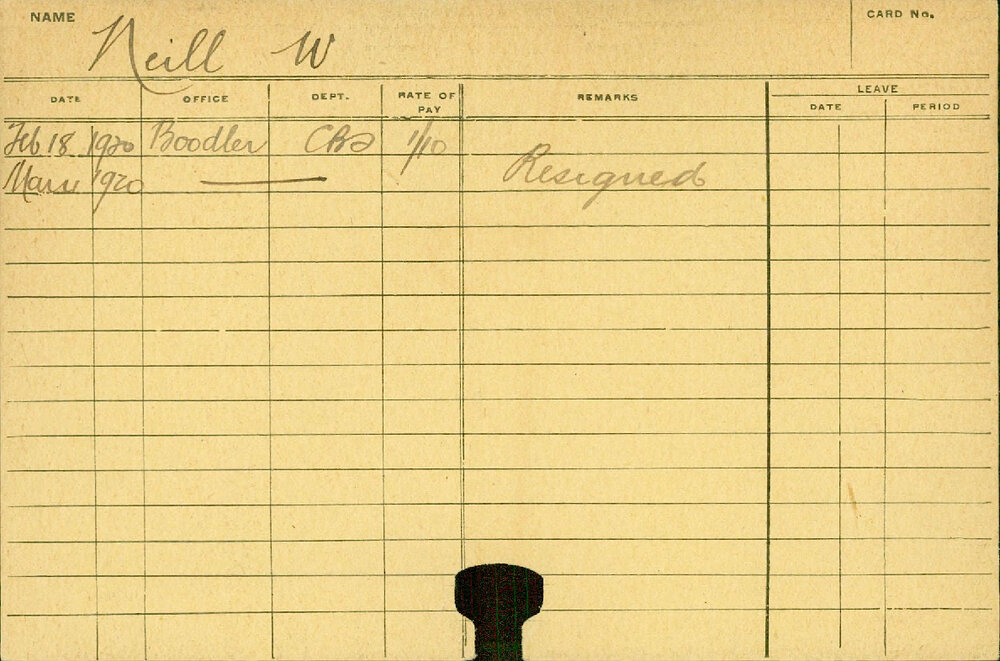 NAME Neill W CARD No.
DATE OFFICE DEPT. RATE OF PAY REMARKS LEAVE
DATE PERIOD
Feb 18 1920 Boodler 1/10
1920 —— Resigned